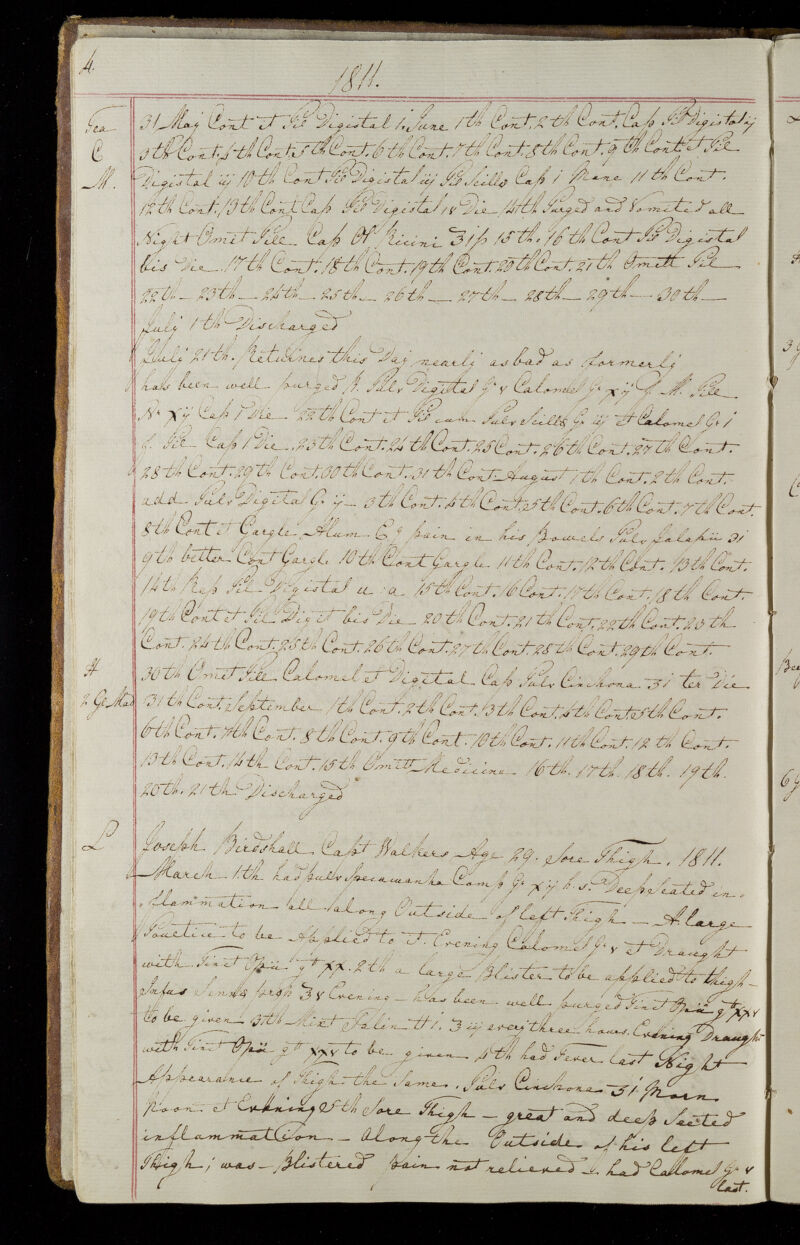 4
1811.
Tea
C
M.
31 May Cont et Pil Digistal i. June 1th Cont. 2th Cont. Cap Pil Digistal ij
3th Cont. 4th Cont. 5th Cont. 6th Cont. 7th Cont. 8th Cont. 9th Cont et Pil
Digistal iij 10th Cont Pil Digistal iij Pil Scills Cap i Mane 11th Cont.
12th Cont. 13th Cont Cap Pil Digistal iv Die 14th Purged and Vomited all
Night Omit Pill Cap Ol Ricini ʒiſs 15th. 16th Cont Pil Digistal
bis Die 17th Cont. 18th Cont. 19th Cont. 20th Cont. 21th Omitt Pil
22th – 23th – 24th – 25th – 26th – 27th – 28th – 29th – 30th –
July 1th Discharged
July 21th. Returines this Day nearly as bad as formerly
has been well purged R. Pulv Digital Gr v Calomel Gr xij f. M. Pill
No xij Cap 1 Die 22th Cont et Pil cum Pulv Scills Gr iij et Calomel Gr 1
f. Pil Cap 1 Die. 23th Cont. 24th Cont. 25 Cont. 26th Cont. 27th Cont.
28th Cont. 29th Cont. 30th Cont. 31th Cont. August 1th Cont. 2th Cont.
add Pulv Digital G. ij – 3th Cont. 4th Cont. 5th Cont. 6th Cont. 7th Cont.
8th Cont et Gargle Alum pain in his Bowels Pulv Jalapii ʒi
9th better Cont Gargle 10th Cont Gargle 11th Cont. 12th Cont. 13th Cont.
14th Rep Pil Digistal u a 15th Cont. 16 Cont. 17th Cont. 18th Cont.
19th Cont et Pil Digit bis Die 20th Cont. 21th Cont. 22th Cont. 23th
Cont. 24th Cont. 25th Cont. 26th Cont. 27th Cont 28th Cont. 29th Cont.
H 30th Omet Pill Calomel et Digital Cap Pulv Cinchona ʒi ter Die
2 Gt Mad 31th Cont. September 1th Cont. 2th Cont. 3th Cont. 4th Cont. 5th Cont.
6th Cont. 7th Cont. 8th Cont. 9th Cont. 10th Cont. 11th Cont. 12th Cont.
13th Cont. 14th Cont. 15th Omitt Medicine 16th. 17th. 18th. 19th.
20th. 21th Discharged
L Joseph Birdshall Capt Walkers Age 29. Sore Thigh. 1811.
March 1th had pulv Ipecacuanha Comp Gr xij h. s. Deep Seated in-
flammation all along Outside of left Thigh – A large
Poultice to be Applied to it. Evening Calomel Gr v et Draught
with Tinct Opii gt xx. 2th a large Blister to be applied to thigh –
Infus Senna prop ʒv Evening – has been well purged Tinct Opii gt xxv
to be given 3th Mixt Salin ℔i. ʒiij every three hours. Evening Draught
with Tinct Opii gt xxv to be given 4th had Fever last Night
Appearance of Thigh the Same. Pulv Cinchona ʒi Morn
Noon et Evening 5th Sore Thigh – great and deep Seeted
inflammation – along the Outside of his left
Thigh; was – Blistered pain not relieved – had Calomel Gr v
last.
3
Bee
6